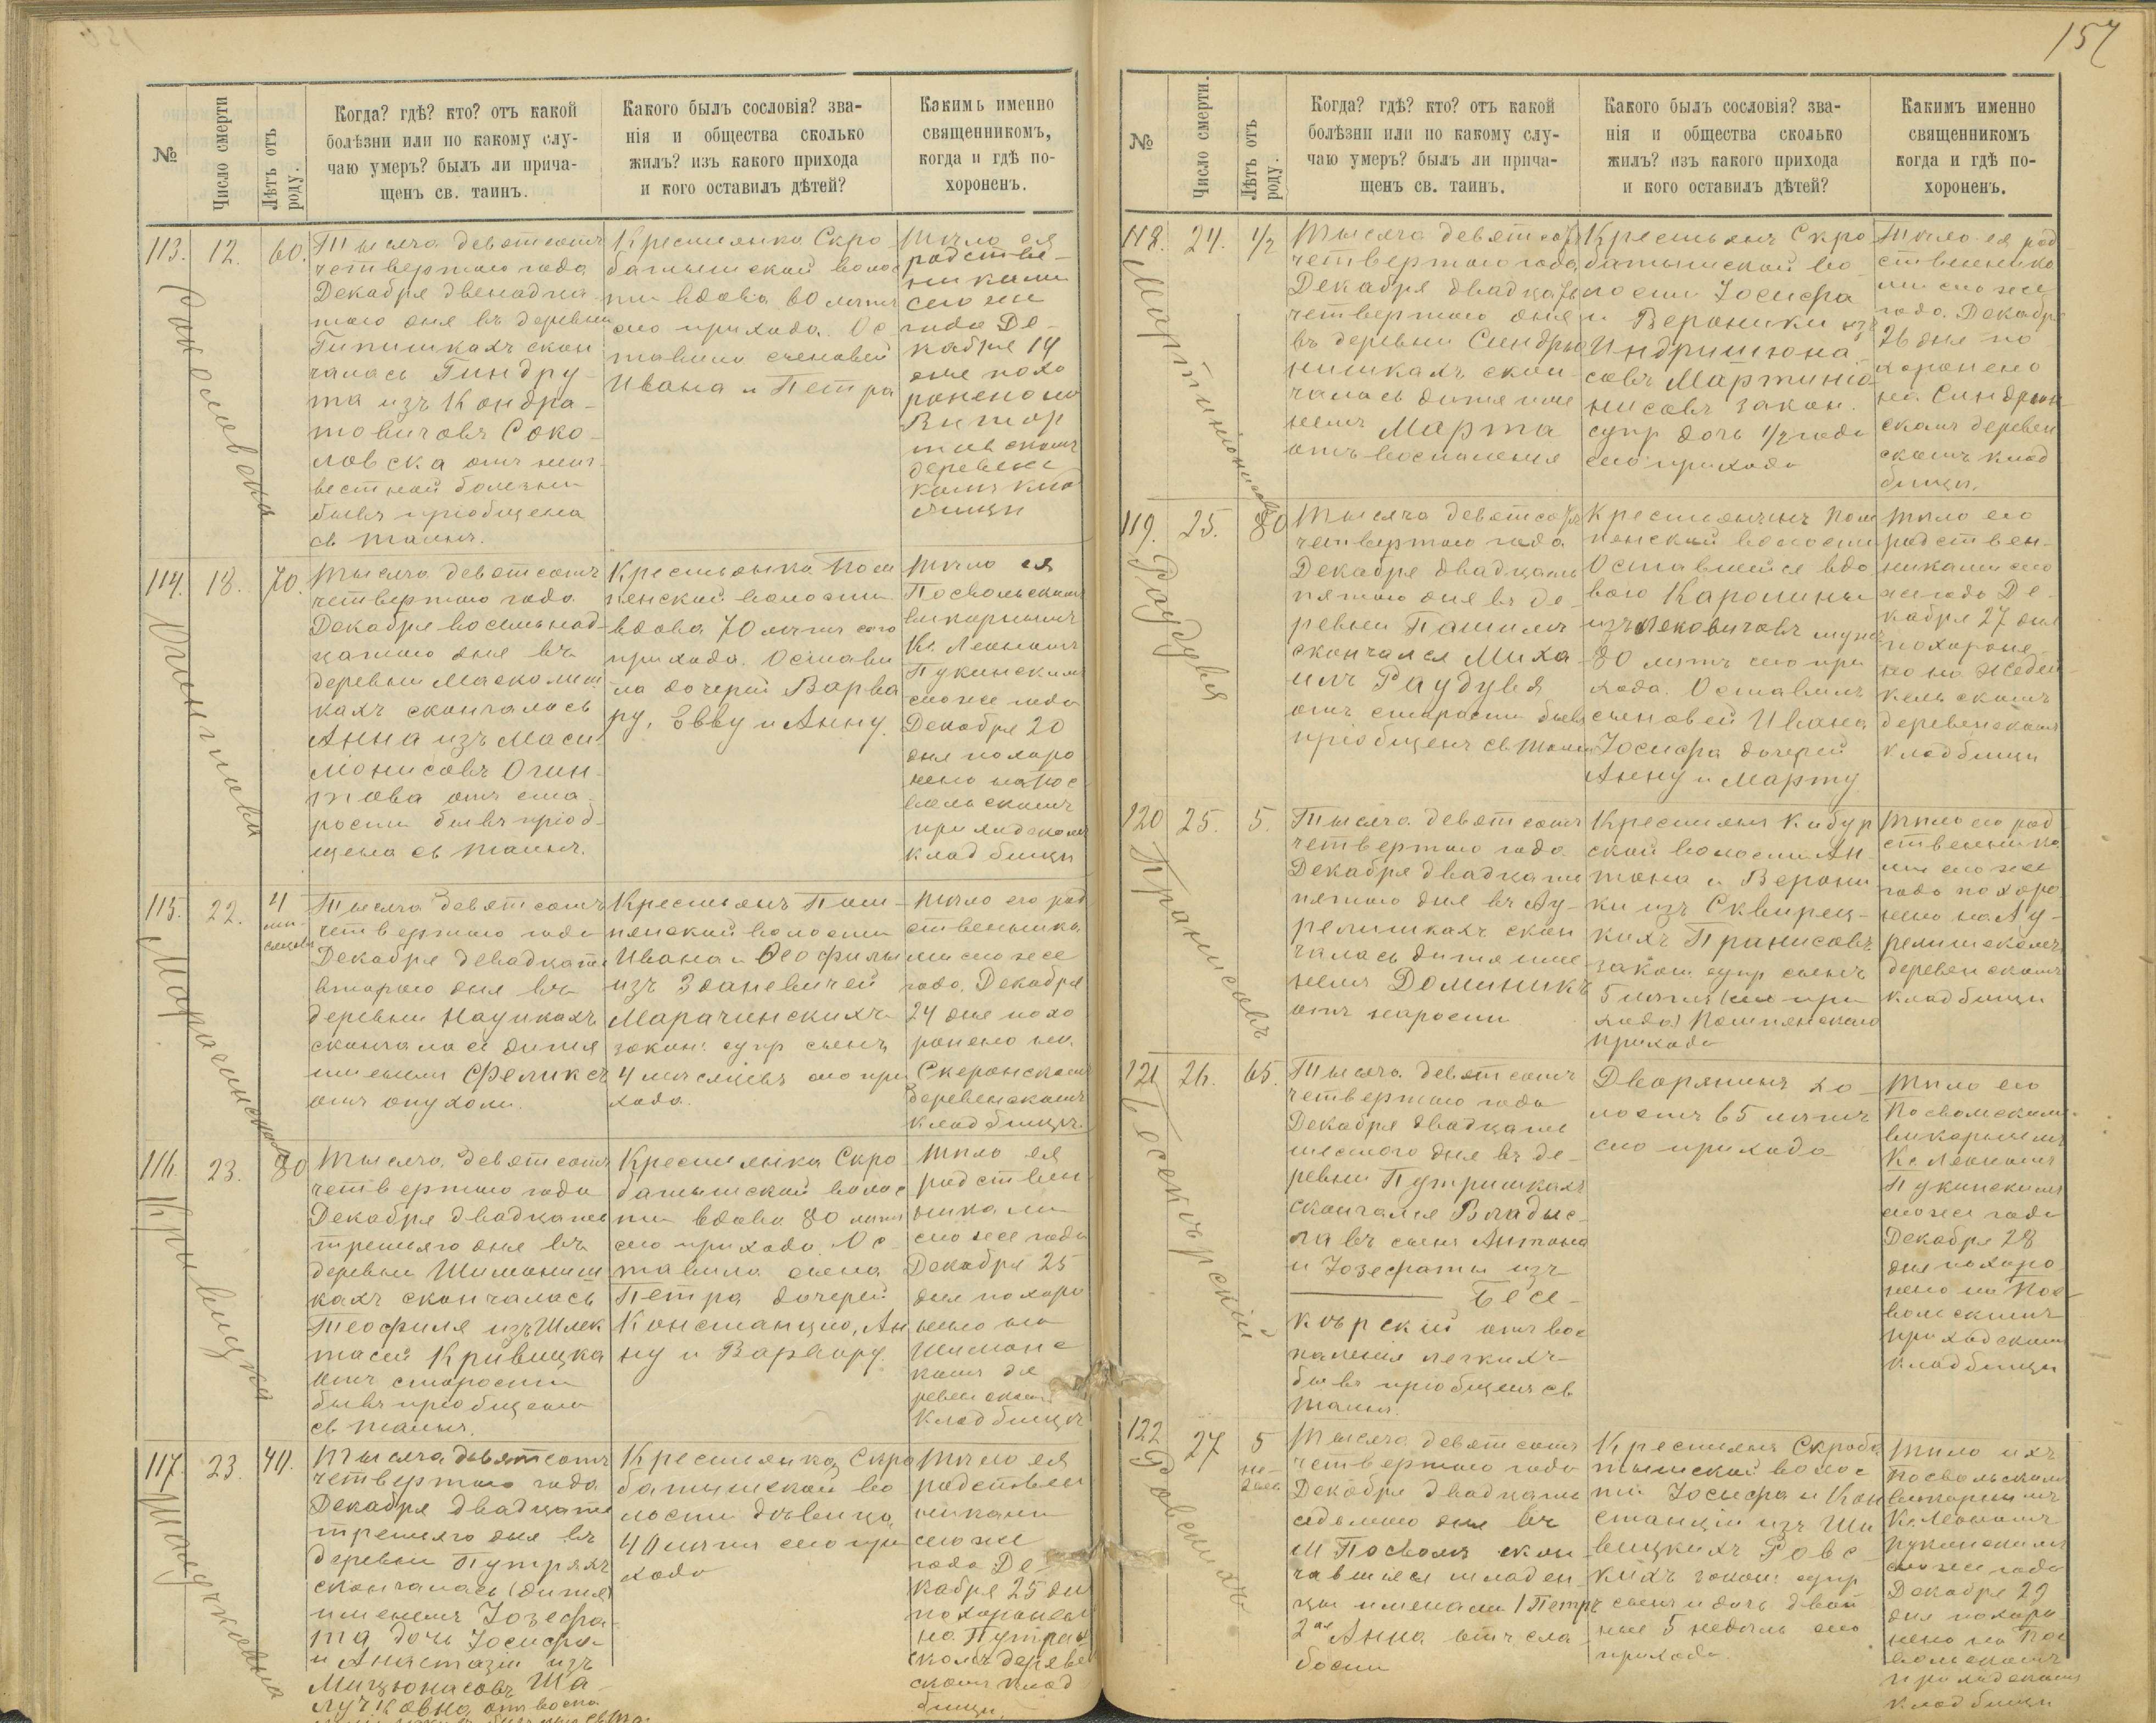 157
№
Число смерти
Лѣтъ отъ роду.
Когда? гдѣ? кто? отъ какой
болѣзни или по какому слу-
чаю умеръ? былъ ли прича-
щенъ св. таинъ.
Какого былъ сословія? зва-
нія и общества сколько
жилъ? изъ какого прихода
и кого оставилъ дѣтей?
Какимъ именно
священникомъ,
когда и гдѣ по-
хороненъ.
113. 12. 60.
Тысяча девятсотъ
четвертаго года
Декабря двенадца
таго дня въ деревни
скон
чалась Гиндру
та изъ Кондра-
товичовъ Соко-
ловска отъ неиз
вестной болезни
бывъ пріобщена
св таинъ.
Крестьянка Скро
батышской волос
ти вдова 60 летъ
сего прихода. Ос
тавила сыновей
Ивана и Петра
Тѣло ея
родстве-
никами
сего же
года Де-
кабря 14
дня похо
ронено на
деревенс
комъ кла
дбищи
114. 18. 70.
Тысяча девятсотъ
четвертаго года
Декабря восемьнад-
цатаго дня въ
деревни
кахъ скончалась
Анна изъ Маси-
монисовъ Огин-
това отъ ста-
рости бывъ пріоб-
щена св таинъ.
Крестьянка Пом
пянской волости
вдова 70 летъ сего
прихода. Остави
ла дочерей Варва
ру, Евву и Анну.
Тѣло ея
Посвольскимъ
викарнымъ
Кс. Леономъ
Пукинскимъ
сего же года
Декабря 20
дня похоро
нено на Пос
вольскомъ
приходскомъ
кладбищи
115. 22. 4
ме-
сяцовъ
Марачинскихъ
Тысяча девятсотъ
четвертаго года
Декабря двадцать
втораго дня въ
деревни Науикахъ
скончалось дитя
именемъ Феликсъ
отъ опухоли.
Крестьянъ Пом-
пянской волости
Ивана и Феофилы
изъ Зданевичей
Марачинскихъ
закон. супр сынъ
4 месяцевъ сего при
хода.
Тѣло его род
ственника
ми сего же
года, Декабря
24 дня похо
ронено на
Скеронскомъ
деревенскомъ
кладбищи.
116. 23. 80
Кривицка
Тысяча девятсотъ
четвертаго года
Декабря двадцать
третьяго дня въ
деревни Шимониш
кахъ скончалась
Теофиля изъ Шлек
тасей Кривицка
отъ старости
бывъ пріобщена
св таинъ.
Крестьянка Скро
батышской волос
ти вдова 80 летъ
сего прихода. Ос
тавила сына
Петра дочерей
Констанцію, Ан
ну и Варвару
Тѣло ея
родствен
никами
сего же года
Декабря 25
дня похоро
нено на
Шимонс
комъ де
ревенскомъ
кладбищи
117. 23. 40.
Тысяча девятсотъ
четвертаго года
Декабря двадцать
третьяго дня въ
деревни Путряхъ
скончалась (дитя)
именемъ Іозефа-
та дочь Іосифа
и Анастазіи изъ
Мицюнасовъ Ша-
лучковна отъ воспа
Крестьянка Скро
батышской во
лости дѣвица
40 летъ сего при
хода
Тѣло ея
родствен
никами
сего же
года Де-
кабря 25 дня
похоронено
на Путрай
скомъ деревен
скомъ клад
бищи.
№
Число смерти.
Лѣтъ отъ роду.
Когда? гдѣ? кто? отъ какой
болѣзни или по какому слу-
чаю умеръ? былъ ли прича-
щенъ св. таинъ.
Какого былъ сословія? зва-
нія и общества сколько
жилъ? изъ какого прихода
и кого оставилъ дѣтей?
Какимъ именно
священникомъ
когда и гдѣ по-
хороненъ.
118. 24. 1/2
Тысяча девятсотъ
четвертаго года
Декабря двадцать
четвертаго дня
въ деревни Синдры
нишкахъ скон-
чалась дитя име
немъ Марта
отъ воспаленія
Крестьянъ Скро
батышской во
лости Іосифа
и Вероники изъ
Индришіона
совъ Мартиніо
нисовъ закон.
супр дочь 1/2 года
сего прихода
Тѣло ея род
ственника
ми сего же
года Декабря
26 дня по
хоронено
на Синдрюн
скомъ деревен
скомъ клад
бищи.
119. 25. 80
Раудувя
Тысяча девятсотъ
четвертаго года
Декабря двадцать
пятаго дня въ де-
ревни
скончался Миха
илъ Раудувя
отъ старости бывъ
пріобщенъ св таин
Крестьянинъ Пом
пянской волости
Оставшейся вдо
вою Каролины
мужъ
80 летъ сего при
хода. Оставилъ
сыновей Ивана
Іосифа дочерей
Анну и Марту
Тѣло его
родствен-
никами сего
же года Де-
кабря 27 дня
похороне-
но на
деревенскомъ
кладбищи
120 25. 5.
Пранисовъ
Тысяча девятсотъ
четвертаго года
Декабря двадцать
пятаго дня въ Ау-
релишкахъ скон
чалась дитя име
немъ Доминикъ
отъ
Крестьянъ Кибур
ской волости Ан-
тона и Верони
ки изъ Сквирец-
кихъ Пранисовъ
закон супр сынъ
5 летъ (сего при
хода) Помпянскаго
прихода
Тѣло его род
ственника
ми сего же
года похоро
нено на Ау-
релишскомъ
деревенскомъ
кладбищи
121 26. 65.
Тысяча девятсотъ
четвертаго года
Декабря двадцать
шестого дня въ де-
ревни Путришкахъ
скончался Владыс-
лавъ сынъ Антона
и Іозефаты изъ
Бесе-
кѣрскій отъ вос
паленія легкихъ
бывъ пріобщенъ св
таинъ.
Дворянинъ хо-
лостъ 65 летъ
сего прихода
Тѣло его
Посвольскимъ
викарнымъ
Кс. Леономъ
Пукинскимъ
сего же года
Декабря 28
дня похоро
нено на Пос-
вольскомъ
приходскомъ
кладбищи
122 27 5
не-
дель
Ровскихъ
Тысяча девятсотъ
четвертаго года
Декабря двадцать
седьмого дня въ
м Посволъ скон
чавшіяся младен-
цы именами 1 Петръ
2ая Анна отъ сла-
бости
Крестьянъ Скроба
тышской волос
ти Іосифа и Кон
станціи изъ Ши
вицкихъ Ровс-
кихъ закон. супр
сынъ и дочь двой
ние 5 недель сего
прихода
Тѣло ихъ
Посвольскимъ
викарнымъ
Кс. Леономъ
Пукинскимъ
сего же года
Декабря 29
дня похоро
нено на Пос
вольскомъ
приходскомъ
кладбищи